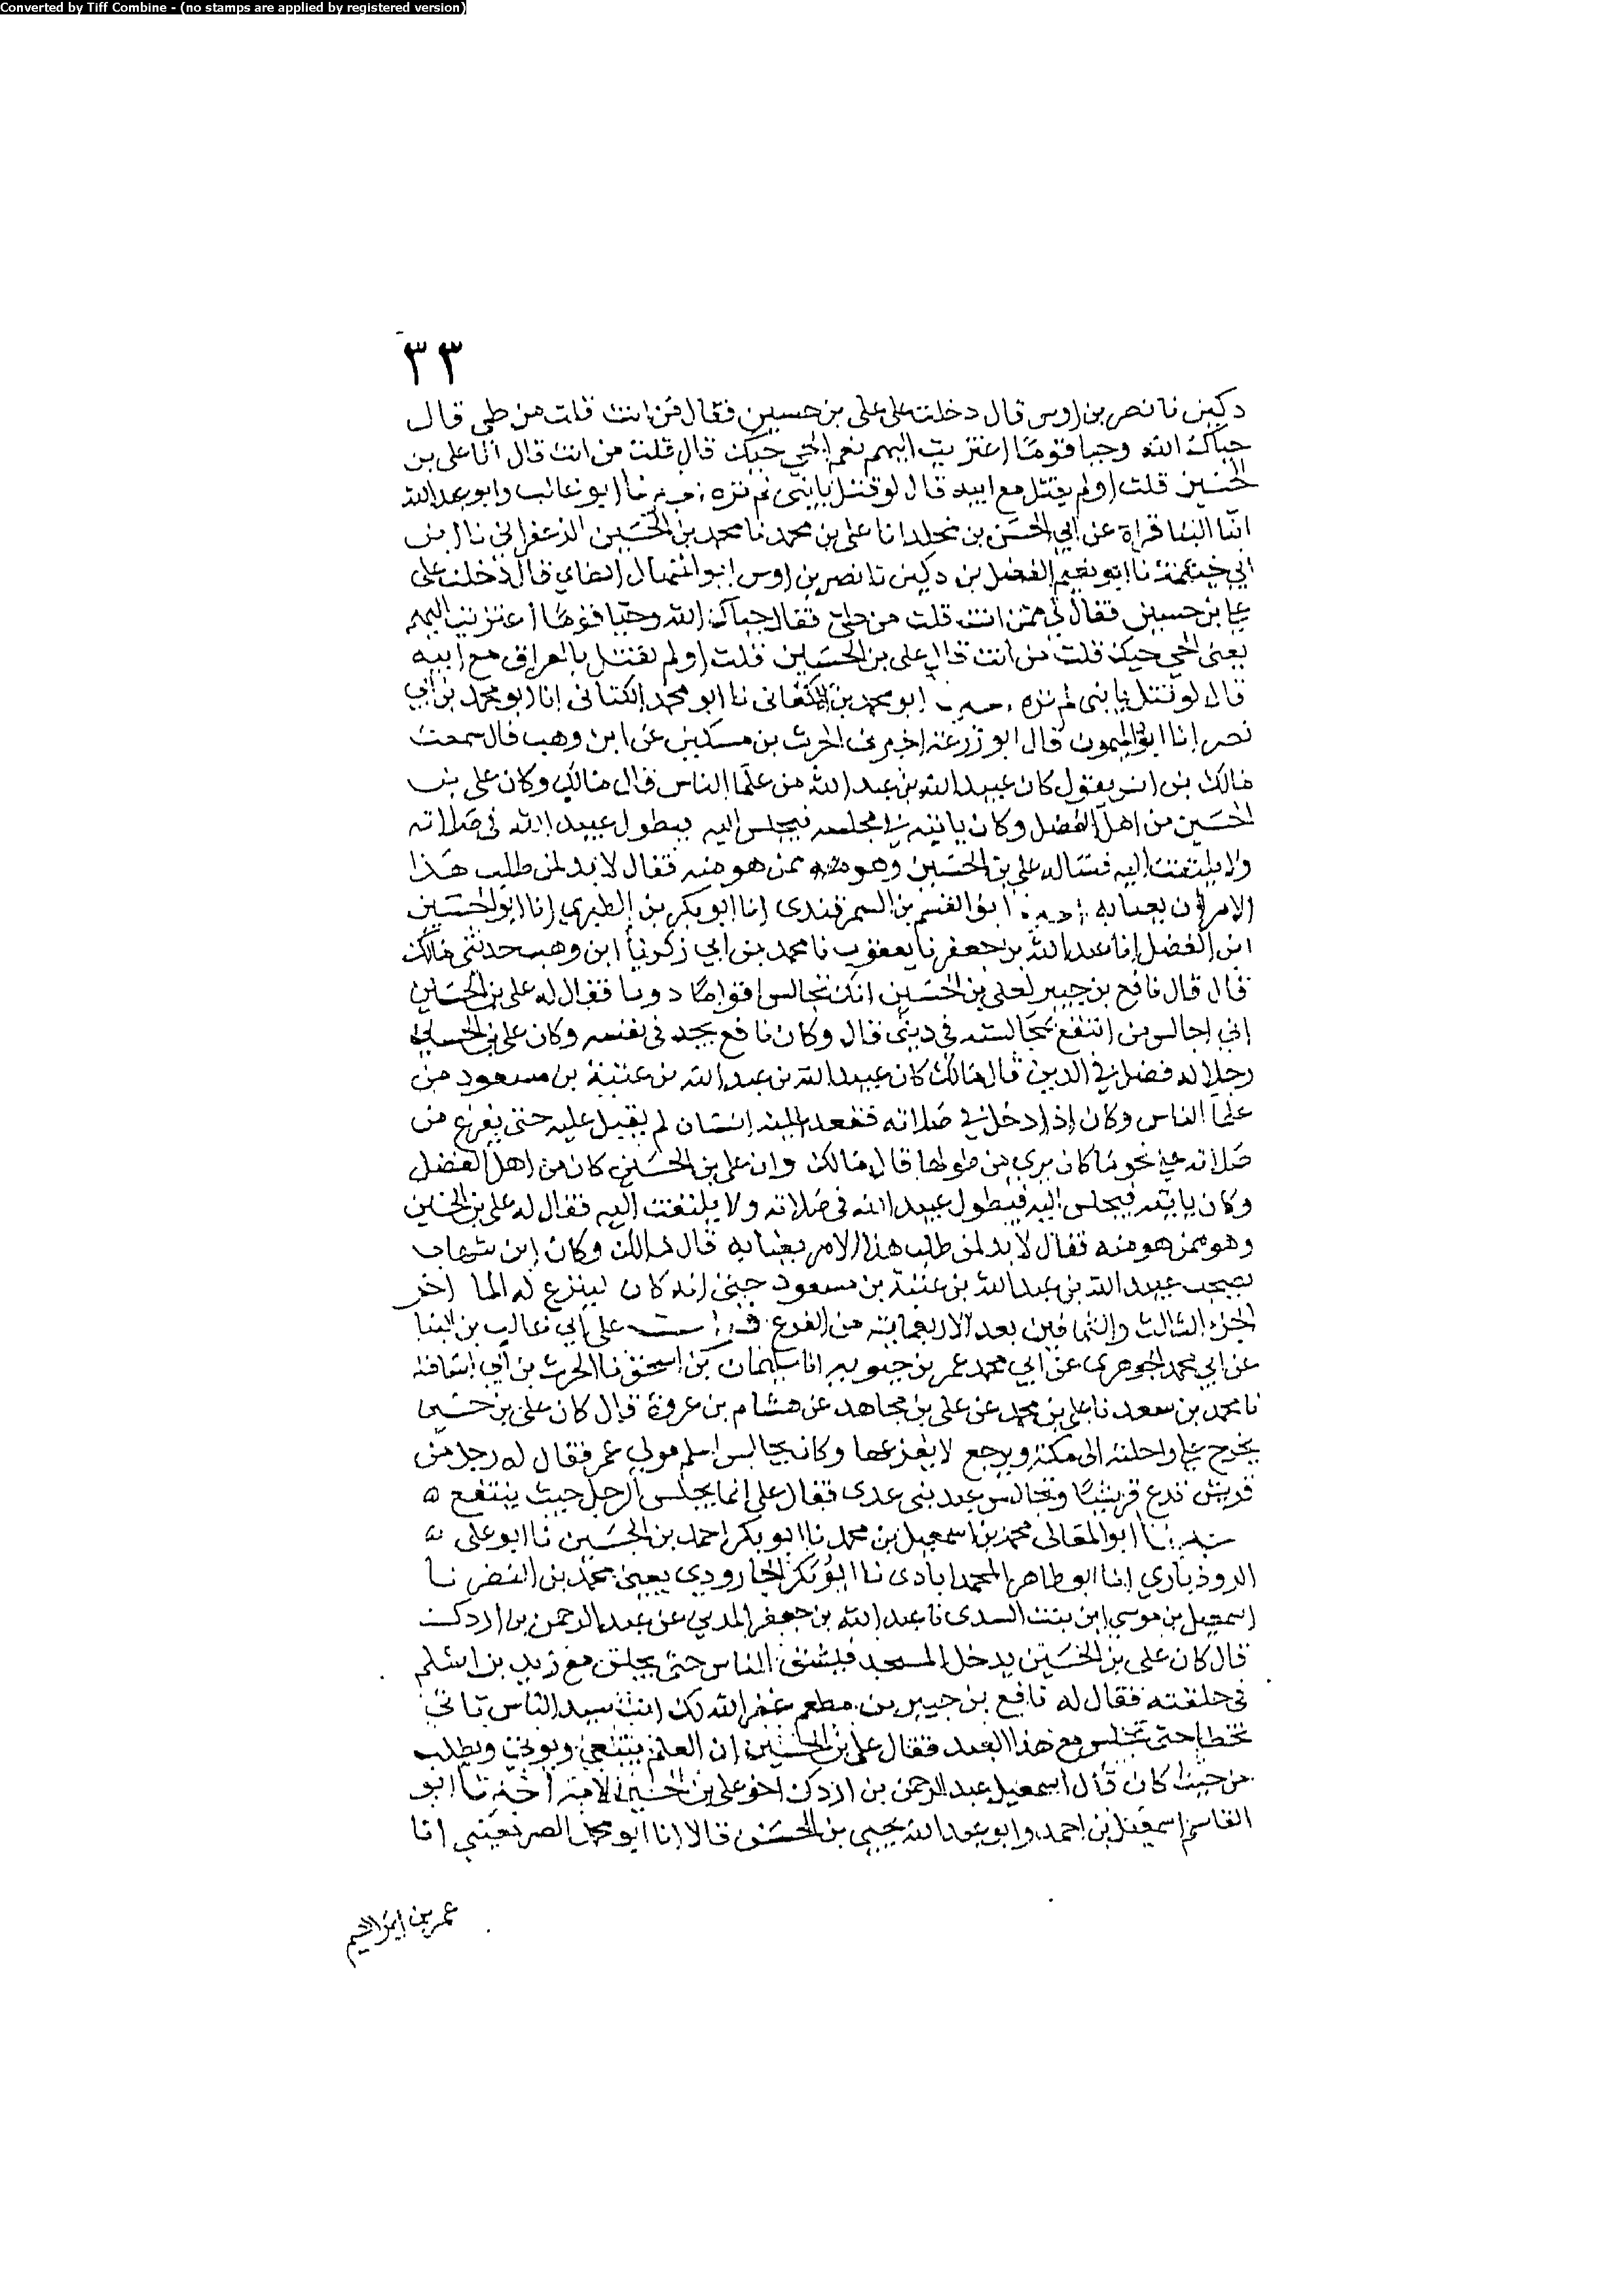 Converted by Tiff Combine - (no stamps are applied by registered version)
٣٣
دكين نا نصر بن اوس قال دخلت على علي بن حسين فقال فمن انت قلت من طي قال
حياك الله وحيا قوما اعتزيت اليهم نعم الحي حيك قال قلت من انت قال انا علي بن
الحسين قلت اولم يقتل مع ابيه قال لو قتل يا بني لم تره نا ابو غالب وابو عبد الله
ابنا البنا قراة عن ابي الحسن بن مخلد انا علي بن محمد نا محمد بن الحسين الزعفراني نا ابن
ابي خيثمة نا ابو نعيم الفضل بن دكين نا نصر بن اوس ابو المنهال الطاي قال دخلت على
علي بن حسين فقال لي ممن انت قلت من طي فقال حياك الله وحيا قوما اعتزيت اليهم
يعنى الحي حيك قلت من انت قال علي بن الحسين قلت اولم يقتل بالعراق مع ابيه
قال لو قتل يا بني لم تره ابو محمد بن الاكفاني نا ابو محمد الكتاني انا ابو محمد بن ابي
نصر انا ابو الميمون قال ابو زرعة اخبرني الحرث بن مسكين عن ابن وهب قال سمعت
مالك بن انس يقول كان عبيد الله بن عبد الله من علما الناس قال مالك وكان علي بن
الحسين من اهل الفضل وكان ياتيه في مجلسه فيجلس اليه فيطول عبيد الله في صلاته
ولا يلتفت اليه فساله علي بن الحسين وهو ممن هو منه فقال لا بد لمن طلب هذا
الامر ان يعنا به ابو القسم بن السمرقندي انا ابو بكر بن الطبري انا ابو الحسين
ابن الفضل انا عبد الله بن جعفر نا يعقوب نا محمد بن ابي زكريا ابن وهب حدثني مالك
قال قال نافع بن جبير لعلي بن الحسين انك تجالس اقواما دونا فقال له علي بن الحسين
اني اجالس من انتفع بمجالسته في ديني قال وكان نافع يجد في نفسه وكان علي بن الحسين
رجلا له فضل في الدين قال مالك كان عبيد الله بن عبد الله بن عتبة بن مسعود من
علما الناس وكان اذا دخل في صلاته فقعد اليه انسان لم يقبل عليه حتى يفرغ من
صلاته على نحو ما كان يرى من طولها قال مالك وان علي بن الحسين كان من اهل الفضل
وكان ياتيه فيجلس اليه فيطول عبيد الله في صلاته ولا يلتفت اليه فقال له علي بن الحسين
وهو ممن هو منه فقال لا بد لمن طلب هذا الامر يعنا به قال مالك وكان ابن شهاب
يصحب عبيد الله بن عبد الله بن عتبة بن مسعود حتى انه كان لينزع له الما اخر
الجزء الثالث والثمانين بعد الاربعماية من الفرع قرات على ابي غالب بن البنا
عن ابي محمد الجوهري عن ابي محمد عمر بن حيويه انا سليمان بن اسحق نا الحرث بن ابي اسامة
نا محمد بن سعد نا علي بن محمد عن علي بن مجاهد عن هشام بن عروة قال كان علي بن حسين
يخرج على راحلته الى مكة ويرجع لا يقرعها وكان يجالس اسلم مولى عمر فقال له رجل من
قريش تدع قريشا وتجالس عبد بني عدي فقال علي انما يجلس الرجل حيث ينتفع
ابو المعالي محمد بن اسمعيل بن محمد نا ابو بكر احمد بن الحسين نا ابو علي
الروذباري انا ابو طاهر المحمداباذى نا ابو بكر الجارودي يعني محمد بن النضر نا
اسمعيل بن موسى ابن بنت السدى نا عبد الله بن جعفر المدني عن عبد الرحمن بن اردك
قال كان علي بن الحسين يدخل المسجد فيشق الناس حتى يجلس مع زيد بن اسلم
في حلقته فقال له نافع بن جبير بن مطعم غفر الله لك انت سيد الناس تاتي
تخطا حتى تجلس مع هذا العبد فقال علي بن الحسين ان العلم يبتغى ويوتى ويطلب
من حيث كان قال اسمعيل عبد الرحمن بن اردك اخو علي بن الحسين لامه اخبرنا ابو
القاسم اسمعيل بن احمد وابو عبد الله يحيى بن الحسن قالا انا ابو محمد الصريفيني انا
عمر بن ابراهيم